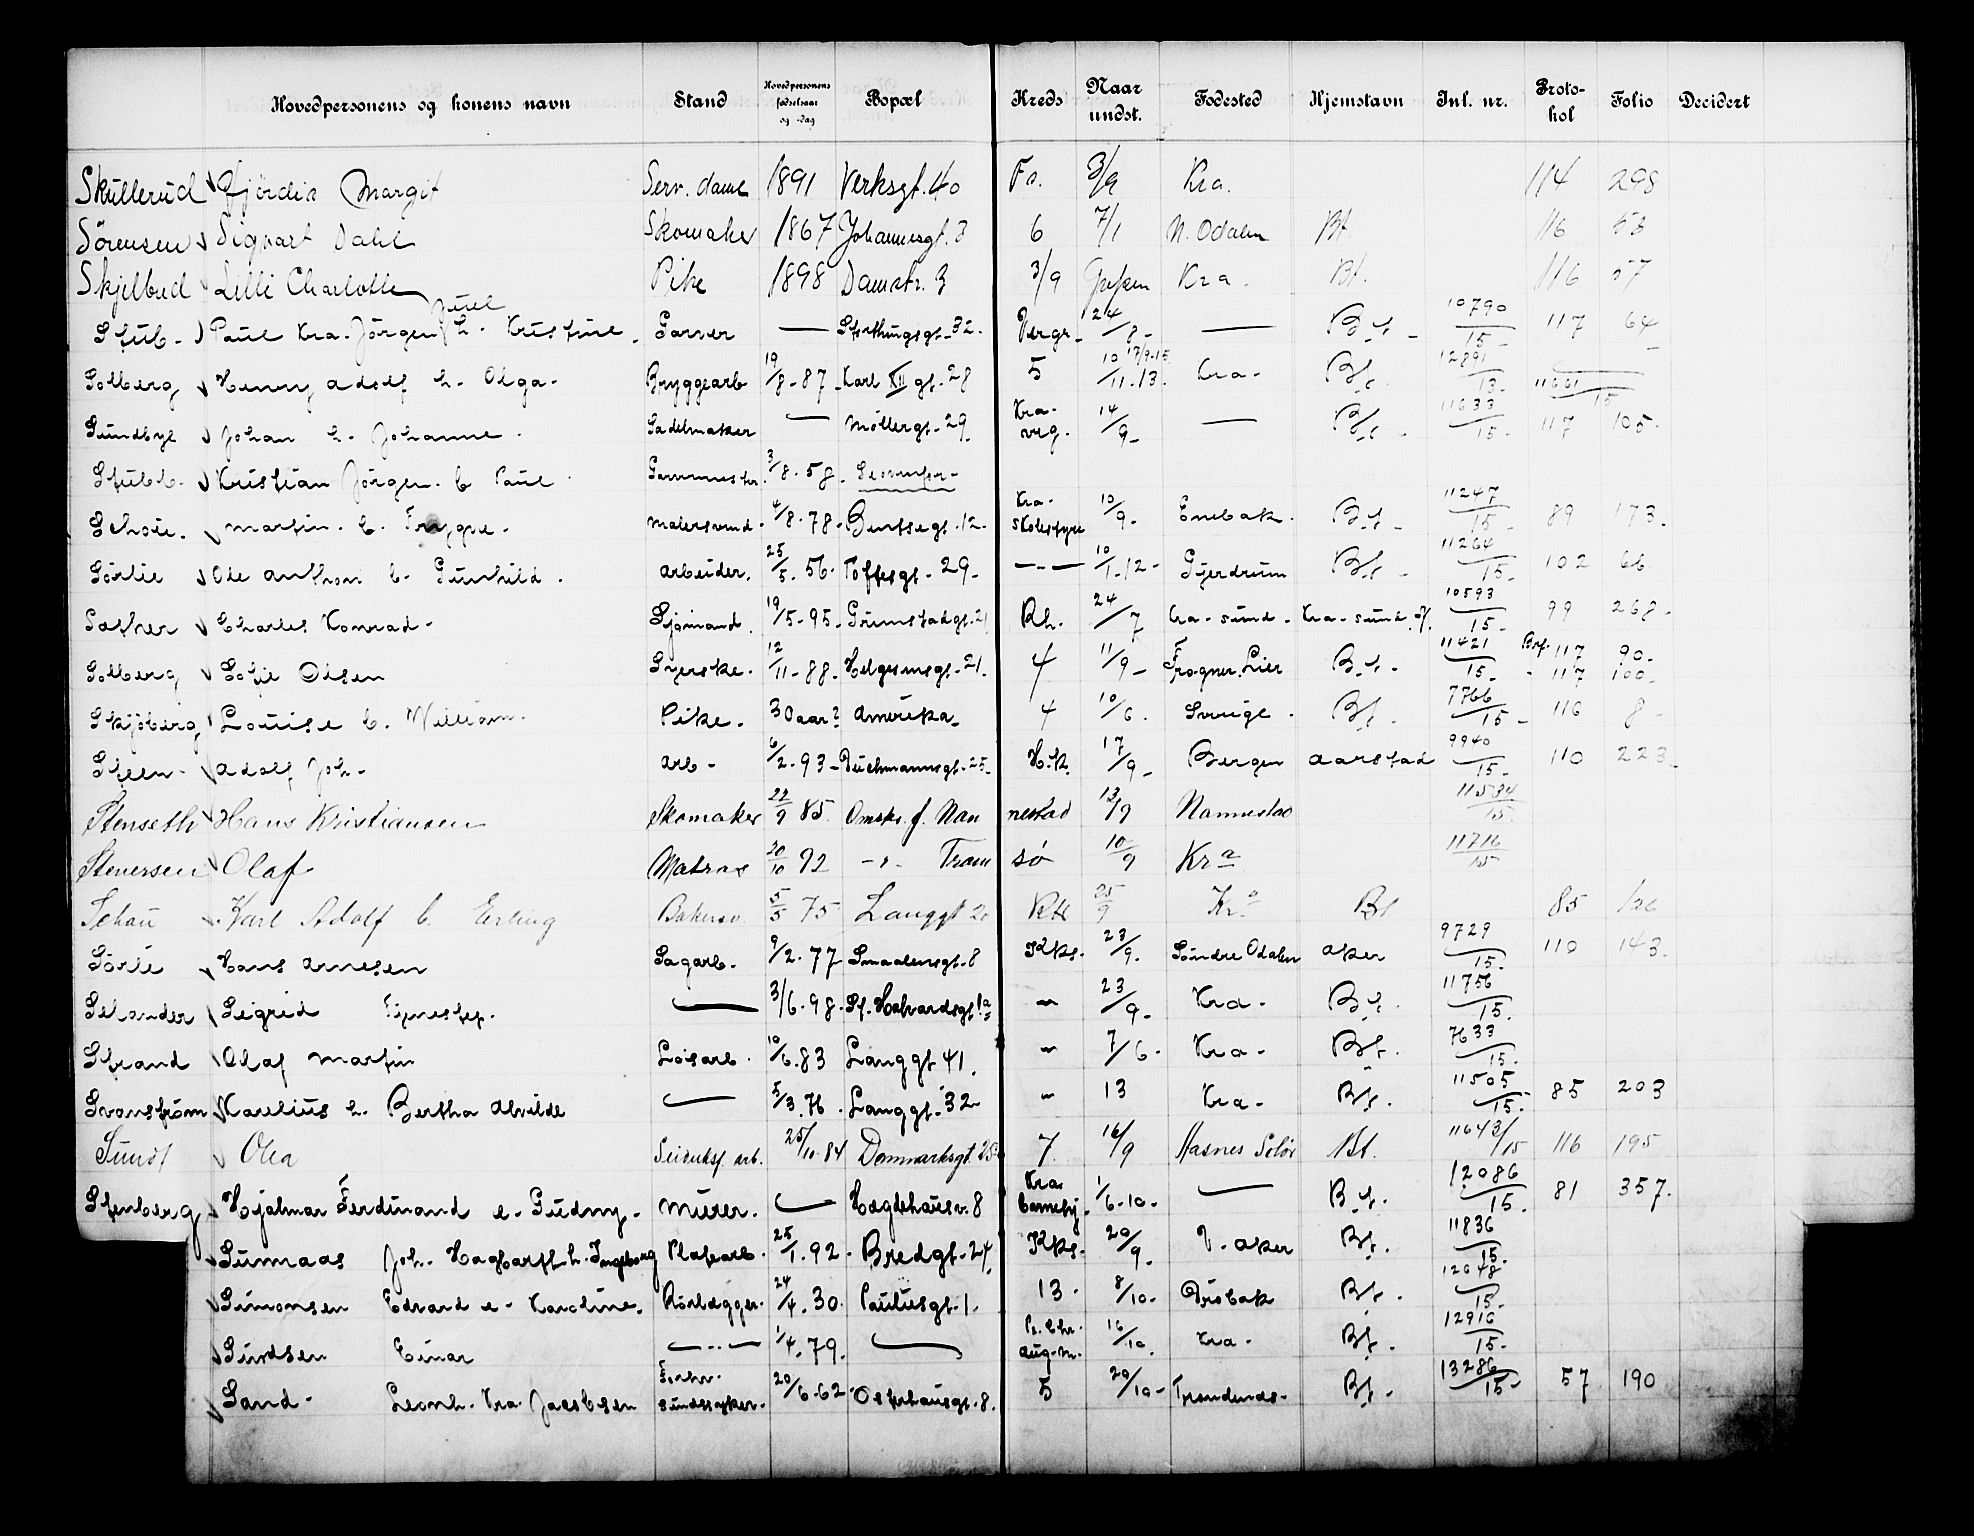 Hovedpersonens og konens navn Stand Hovedpersonens fødselsaar og -dag Bopæl Kreds Naar undst. Fødested Hjemstavn Inl. nr. Protokol Folio Decidert
Skullerud Hjördis Margit Serv. dame 1891 Verksgt. 40 Fo. 3/9 Kra. 114 298
Sörensen Sigvart Dahl Skomaker 1867 Johannesgt. 3 6 7/1 N. Odalen Bt. 116 53
Skjelbred Lilli Charlotte Pike 1898 Damstr. 3 3/9 Kra. Bt. 116 57
Stub - Paul Kra. Jörgen Juul h. Kristine - Garver — Storthingsgt - 32. Vergr. 24/8 - — B.t. - 10790/15 - 117 64
Solberg Henry Adolf h. Olga - Bryggearb 19/8 - 87 - Karl XII gt. - 28 5 10/11 - 13. 17/9-15 Kra - Bt. 12891/13. 11661/15
Sundbye Johan h. Johanne. Sadelmaker — Møllergt - 29. Kra - vrg. 14/9 - — Bt. - 11633/15 - 117 105 -
Stubb. Kristian Jörgen. b Paul 3/8 - 58.
Schou. Martin. b. Trygve. Malersvend. 4/8 - 78 - 12 - Kra - Skolestyre 10/9 - Enebak. B.t. - 11247/15 - 89 173.
Sörlie Ole Anthon b. Gunhild. Arbeider. 25/5. 56 - Toftesgt - 29 - — - — 10/1 - 12 - Gjerdrum Bt. - 11264/15 - 102 66
Sather Charles Konrad - Sjömand. 19/5 - 95 - Grimstadgt. 21 Rh. 24/7 Kra - sund - Kra - sund. 10593/15 - 99 268 -
Solberg Sofie Olsen Syerske. 12/11 - 88 - Helgesensgt - 21. 4 11/9 - Frogner. Lier B.t. - 11421/15 - 117 90 - 117 100 -
Skjöberg Louise b. William. Pike. 30 aar? Amerika - 4 10/6. Sverige. Bt. - 7766/15 - 116 8 -
Steen - Adolf Joh - Arb - 6/2 - 93 - Deichmannsgt - 25 - H.K. 17/9 - Bergen Aarstad 9940/15 - 110 223 -
Stenseth Hans Kristiansen Skomaker 22/9 85. Omstr. f. Nannestad 13/9 Nannestad 11534/15
Stenersen Olaf Matros 20/10 92 - " - Tromsø 10/9 Kra 11716/15
Schau Karl Adolf b. Erling Bakersv. 5/5 75 Langgt 20 RH 25/9 Kra Bt 85
Sörlie Hans Arnesen Sagarb. 9/2. 77 Smaalensgt. 8 Kks. 23/9. Söndre Odalen Aker 9729/15. 110 143.
Selander Sigrid Tjenestep. — 3/6. 98. St. Halvardsgt 1a " 23/9 - Kra - B.t. 11756/15.
Strand Olaf Martin Løsarb. 10/6. 83 Langgt 41. " 7/6 - Kra - Bt. 7633/15.
Svanström Karelius h. Bertha Alvilde — 5/3. 76. Langgt. 32 " 13 Kra - Bt. 11505/15. 85 203
Sund Ola 25/10 - 84 Danmarksgt. 25 7. 16/9 Hasnes Solör Bt. 11643/15 116 195
Stenberg Hjalmar Ferdinand e - Gudny - Murer. — Hægdehausv. 8 Kra barnehj. 1/6 - 10 - — B.t. 12086/15. 81 357.
Sumaas Joh. Hagbarth h. Ingeborg Platearb. 25/1. 92. Bredgt - 24. Kks. 20/9. V. Aker Bt. 11836/15.
Simonsen Edvard e - Karoline. Rörlægger. 24/4. 30. Paulusgt. 1. 13. 8/10 - Dröbak Bt. 12048/15 -
Sundsen Einar — .. — 1/4. 79. — Pr. Chr. Aug. m. 16/10. Kra - Bt. 12916/15 -
Sand - Leonh. Kra Jacobsen 20/6 - 62 - Osterhausgt. 8. 5 20/10 - Trondends - Bt - 13286/15 - 57 190